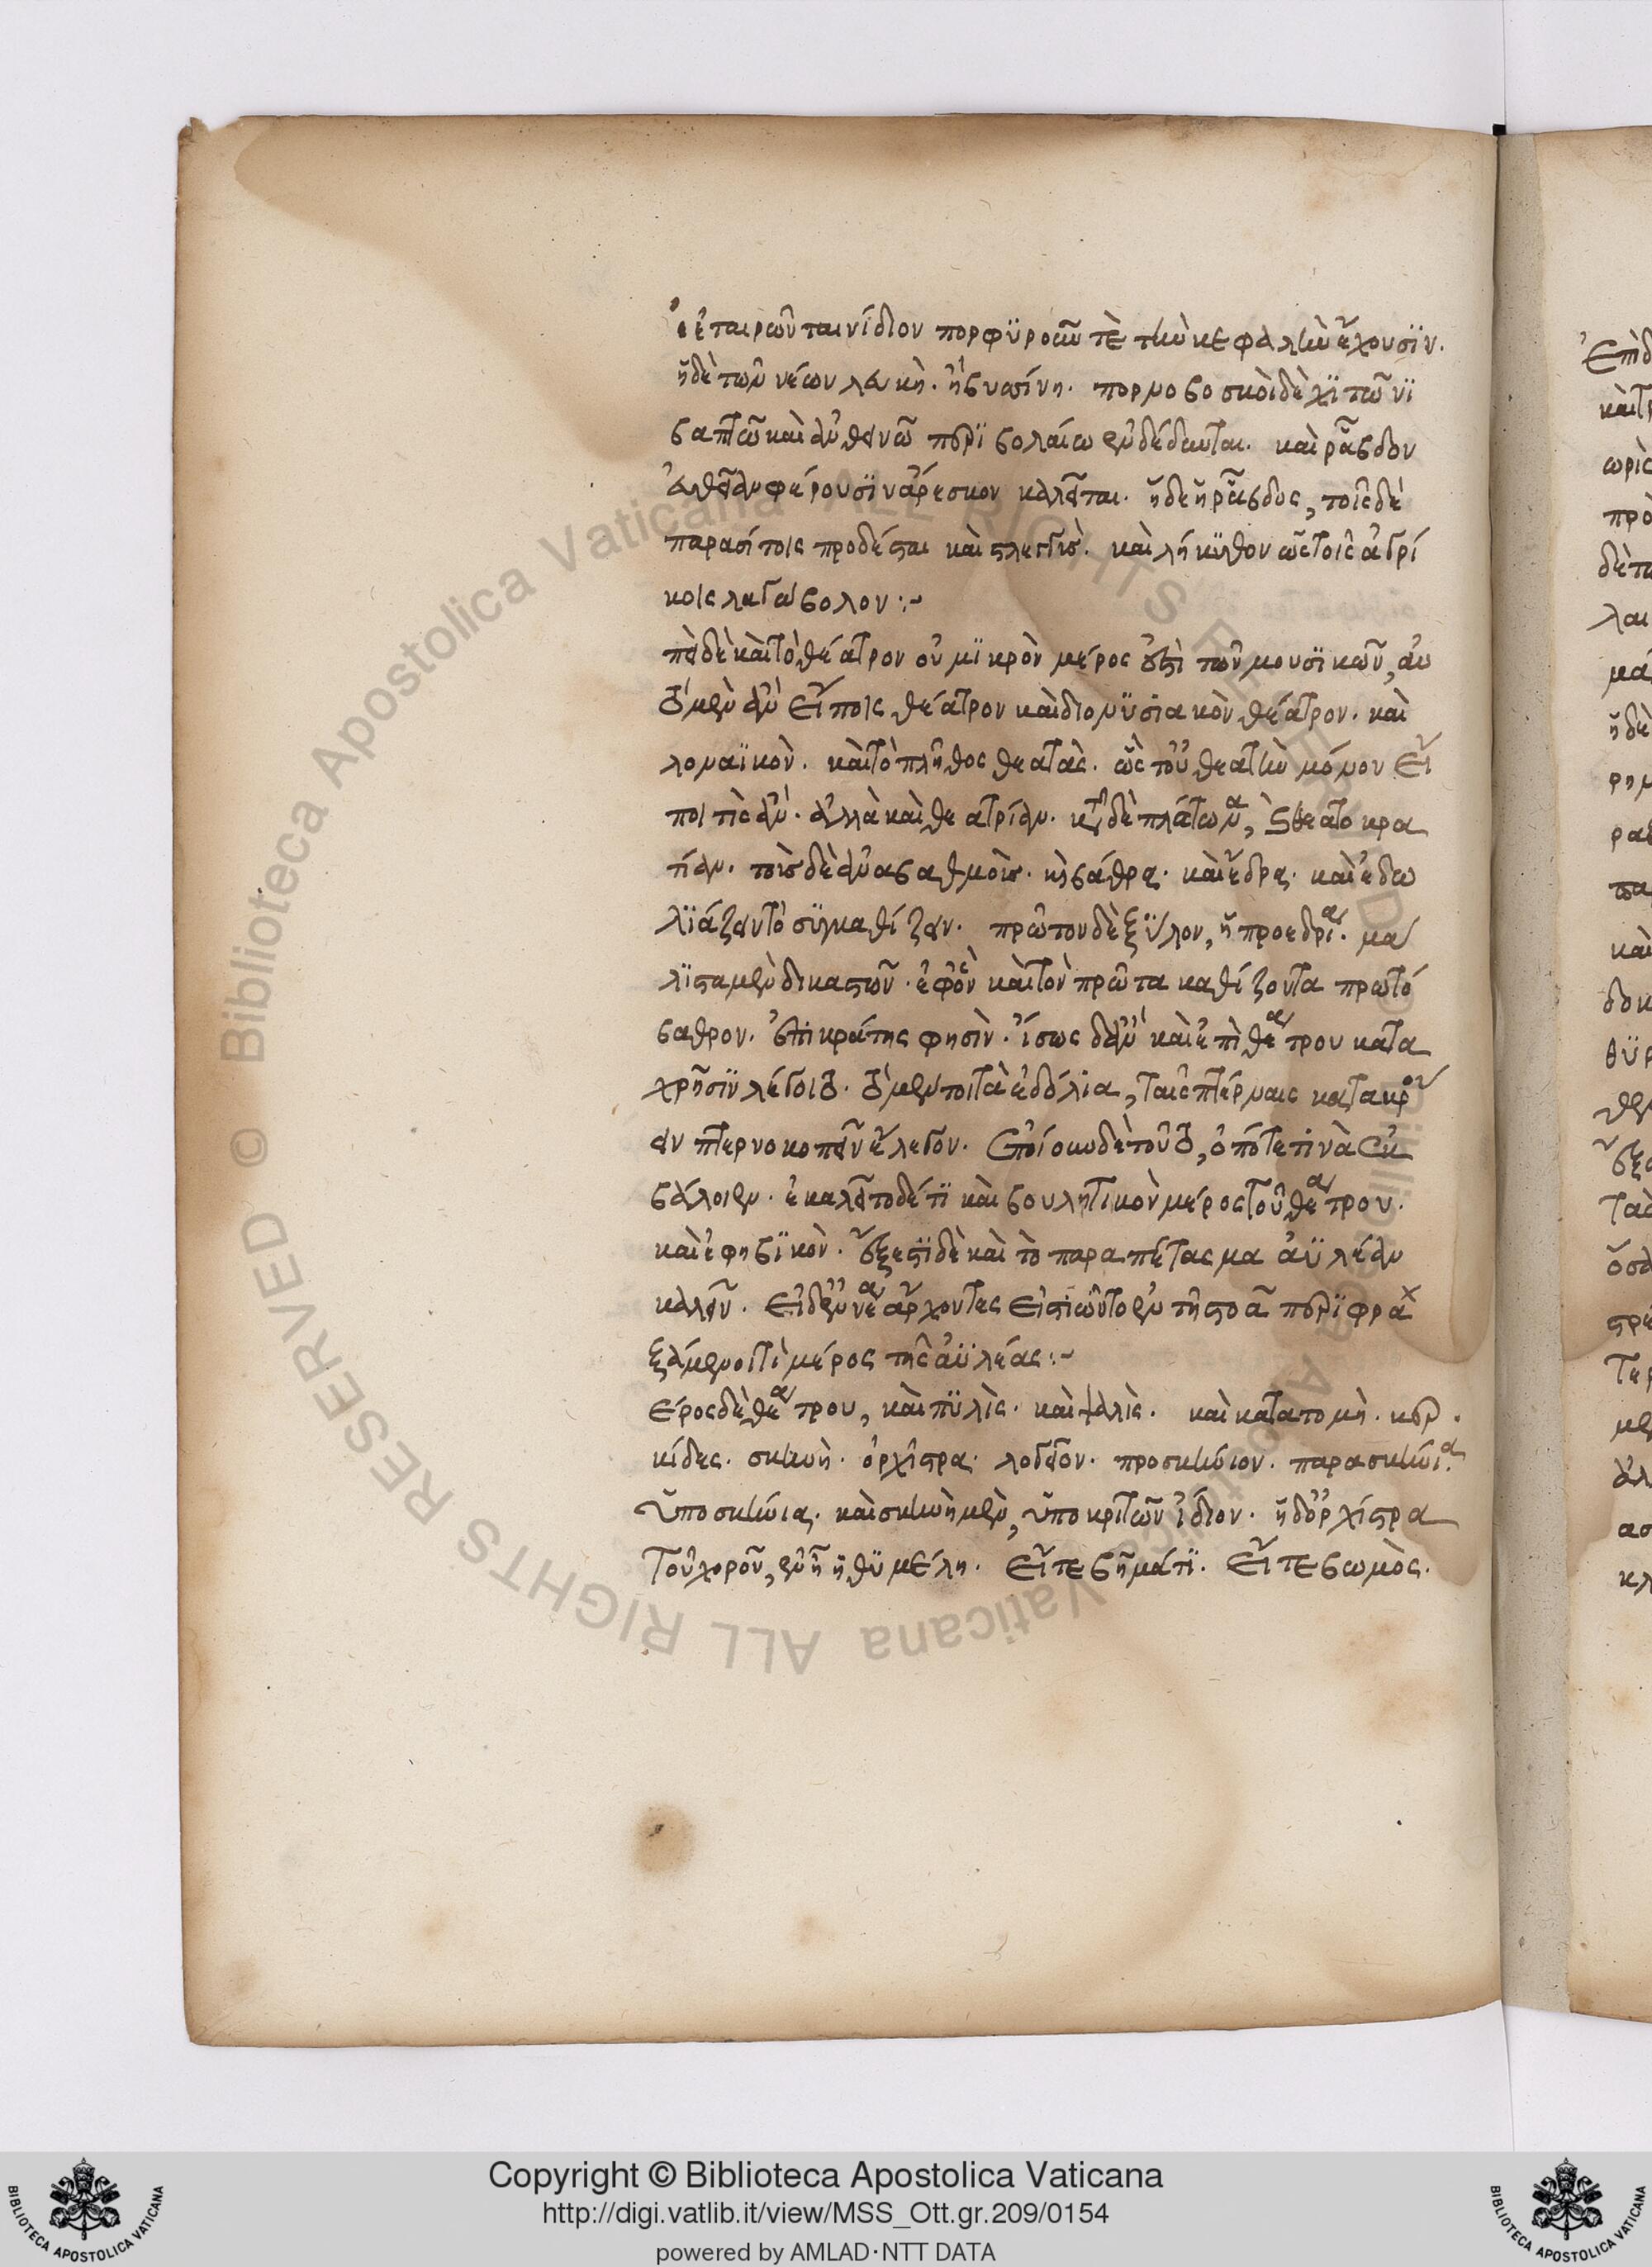 ἑταιρῶν ταινίδιον πορφϋροῦν τὲ τὴν κεφαλὴν ἔχουσϊν.
ἡ δὲ τῶν νέων λευκὴ. ἢ βυσίνη. πορνοβοσκοὶ δὲ χϊτῶνϊ
βαπτῶ καὶ ἀνθεινῶ περϊβολαίω ἐνδέδυνται. καὶ ῥάβδον
εὐθεῖαν φέρουσϊν ἄρεσκον καλεῖται. ἡ δε ἡ ῥάβδος, τοῖς δὲ
παρασίτοις προσέςται καὶ ςλεγγὶς. καὶ λήκϋθον ὡς τοῖς ἀγρί
κοις λαγωβολον :~
πεὶ δὲ καὶ τὸ θέατρον οὐ μϊκρὸν μέρος ἐςτὶ τῶν μουσϊκῶν, αὐ
τὸ μὲν ἂν εἴποις θέατρον καὶ διονυσιακὸν θέατρον. καὶ
λοναϊκὸν. καὶ τὸ πλῆθος θεατὰς. ὡς τοῦ θεατὴν μόνον εἴ
ποι τὶς ἂν. ἀλλὰ καὶ θεατρίαν. κατὰ δὲ πλάτωνα, καὶ θεατοκρα
τίαν. τοὶς δὲ ἀναβαθμοὶς. καὶ βάθρα. καὶ ἕδρα. καὶ ἑδω
λϊάζειν τὸ σϋγκαθίζειν. πρῶτον δὲ ξϋλον, ἡ προεδρία. μα
λϊςα μὲν δικαςῶν. ἐφ' ὃν καὶ τὸν πρῶτα καθίζοντα πρωτό
βαθρον. ἐπικράτης φησὶν. ἴσως δ' ἂν καὶ ἐπὶ θεάτρου κατα
χρῆσϊν λέγοιτο. τὸ μέντοι τὰ ἑδόλια, ταῖς πτέρναις κατακρού
ειν πτερνοκοπεῖν ἔλεγον. ἐποίουν δὲ τοῦτο, ὁπότε τινὰ ἐκ
βάλοιεν. ἐκαλεῖτο δέ τϊ καὶ βουλητικὸν μέρος τοῦ θεάτρου.
καὶ ἐφηβϊκὸν. ἔξεςϊ δὲ καὶ τὸ παραπέτασμα ἀϋλέαν
καλεῖν. εἰ δ' ἐννέα ἄρχοντες εἰσιῶντο ἐν τῆ ςοᾶ περϊφρα
ξάμενοί τι μέρος τῆς ἀϋλέας :~
έρος δὲ θεάτρου, καὶ πϋλὶς. καὶ ψαλὶς. καὶ κατατομὴ. κερ
κίδες. σκηνὴ. ὀρχῆςρα. λογεῖον. προσκήνιον. παρασκήνια.
ὑποσκήνια. καὶ σκηνὴ μὲν, ὑποκριτῶν ἴδιον. ἡ δ' ὀρχίςρα
τοῦ χοροῦ, ἐν ἧ ἡ θϋμέλη. εἴτε βῆμά τϊ. εἴτε βωμὸς.
Copyright © Biblioteca Apostolica Vaticana
http://digi.vatlib.it/view/MSS_Ott.gr.209/0154
powered by AMLAD·NTT DATA